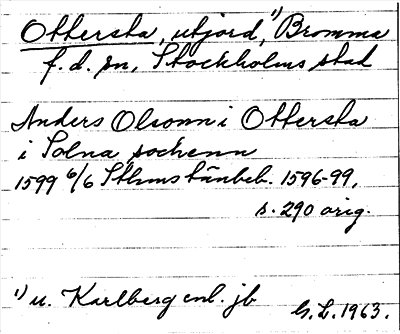 Ottersta, utjord,¹) Bromma
f.d. sn, Stockholms stad
Anders Olsonn i Ottersta
i Solna sochenn
1599 6/6 Sthms tänkeb. 1596-99,
s. 290 orig.
¹) u. Karlberg enl. jb
G.L. 1963.